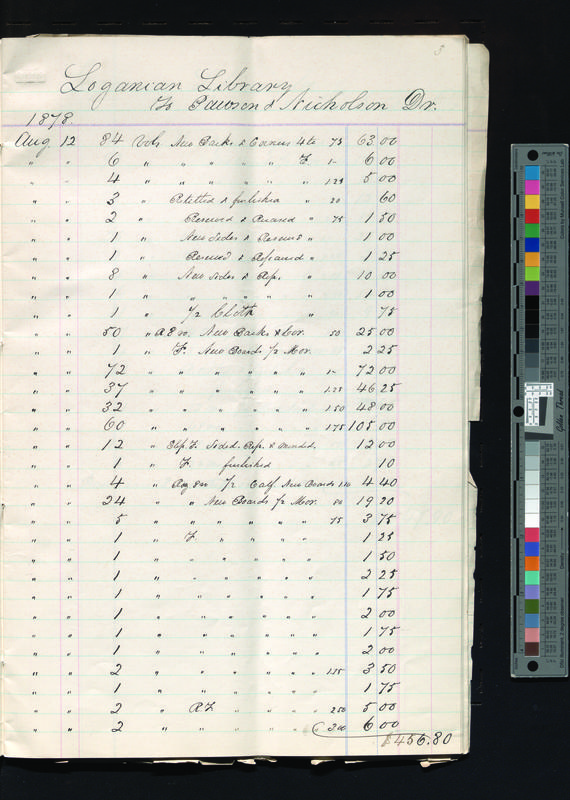 5
Loganian Library
To Pawson & Nicholson Dr.
1878.
Aug 12 84 Vols. New Backs & Corners 4to 75 63 00
" " 6 " " " " " F. 1- 6 00
" - 4 " " " " " " 1.25 5 00
" " 3 " & finished " 20 60
" " 2 " & " 75 1 50
" " 1 " New Sides & " 1 00
" " 1 " & Repaired " 1 25
" " 8 " New Sides & Rep. " 10 00
" " 1 " " " " " " 1 00
" " 1 " 1/2 Cloth " 75
" " 50 " New Backs & Cor. 50 25 00
" " 1 " F. New Boards 1/2 Mor. 2 25
" " 72 " " " " " " 1- 72 00
" " 37 " " " " " " 1.25 46 25
" " 32 " " " " " " 1.50 48 00
" " 60 " " " " " " 1.75 105 00
" " 12 " Rep. & 12 00
" " 1 " F. finished 10
" " 4 " 8vo 1/2 Calf New Boards 1.10 4 40
" " 24 " " " New Boards 1/2 Mor. 80 19 20
" " 5 " " " " " " " 75 3 75
" " 1 " F. " " " " 1 25
" " 1 " " " " " " 1 50
" " 1 " " " " " " 2 25
" " 1 " " " " " " 1 75
" " 1 " " " " " " 2 00
" " 1 " " " " " " 1 75
" " 1 " " " " " " 2 00
" " 2 " " " " " " 3 50
" " 1 " " " " " " 1 75
" " 2 " " " " " 2 50 5 00
" " 2 " " " " " " 3 00 6 00
$456.80